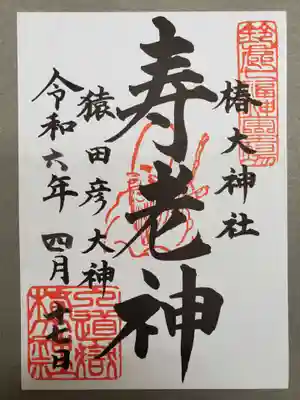 椿大神社
寿老神
猿田彦大神
令和六年 四月 十七日